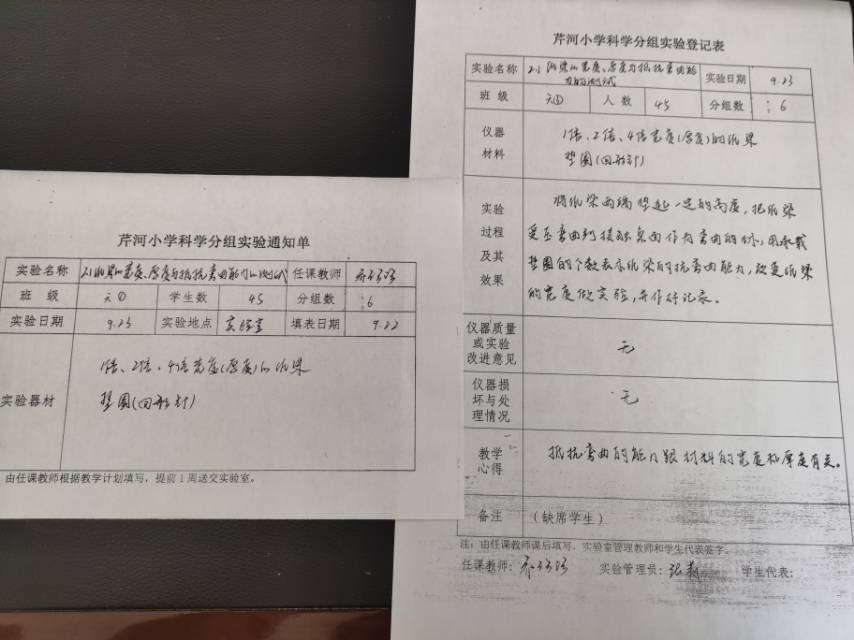 芹河小学科学分组实验通知单
实验名称 2.1纸梁的宽度、厚度与抵抗弯曲能力的测试 任课教师
班 级 六① 学生数 45 分组数 6
实验日期 9.23 实验地点 实验室 填表日期 9.22
实验器材
1倍、2倍、4倍宽度(厚度)的纸梁
垫圈(回形针)
由任课教师根据教学计划填写，提前1周送交实验室。
芹河小学科学分组实验登记表
实验名称 2.1纸梁的宽度、厚度与抵抗弯曲能力的测试 实验日期 9.23
班 级 六① 人 数 45 分组数 6
仪器材料
1倍、2倍、4倍宽度(厚度)的纸梁
垫圈(回形针)
实验过程及其效果
将纸梁两端垫起一定的高度，把纸梁
受压弯曲到接触桌面作为弯曲的标，用承载
垫圈的个数表示纸梁的抗弯曲能力，改变纸梁
的宽度做实验，并作好记录。
仪器质量或实验改进意见
无
仪器损坏与处理情况
无
教学心得
抵抗弯曲的能力跟材料的宽度和厚度有关。
备注 (缺席学生)
注：由任课教师课后填写，实验室管理教师和学生代表签字。
任课教师： 实验管理员： 学生代表：